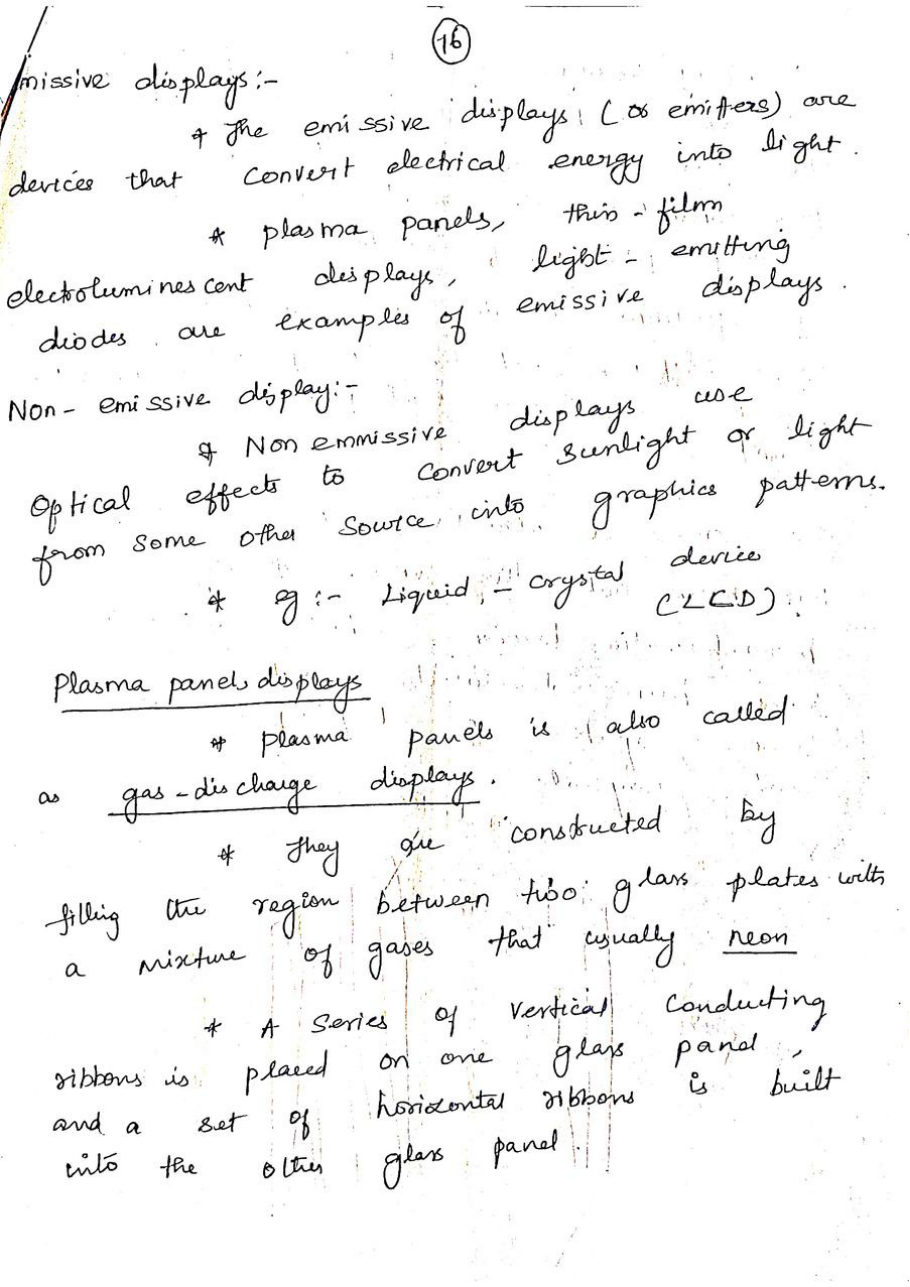 16
missive displays:-
* The emissive displays (or emitters) are
devices that convert electrical energy into light.
* plasma panels, thin-film
electroluminescent displays, light-emitting
diodes are examples of emissive displays.
Non-emissive display:-
* Non emmissive displays use
Optical effects to convert sunlight or light
from some other source into graphics patterns.
* eg:- Liquid-crystal device
(LCD)
Plasma panels displays
* plasma panels is also called
as gas-discharge displays.
* They are constructed by
filling the region between two glass plates with
a mixture of gases that usually neon
* A series of vertical conducting
ribbons is placed on one glass panel,
and a set of horizontal ribbons is built
into the other glass panel.